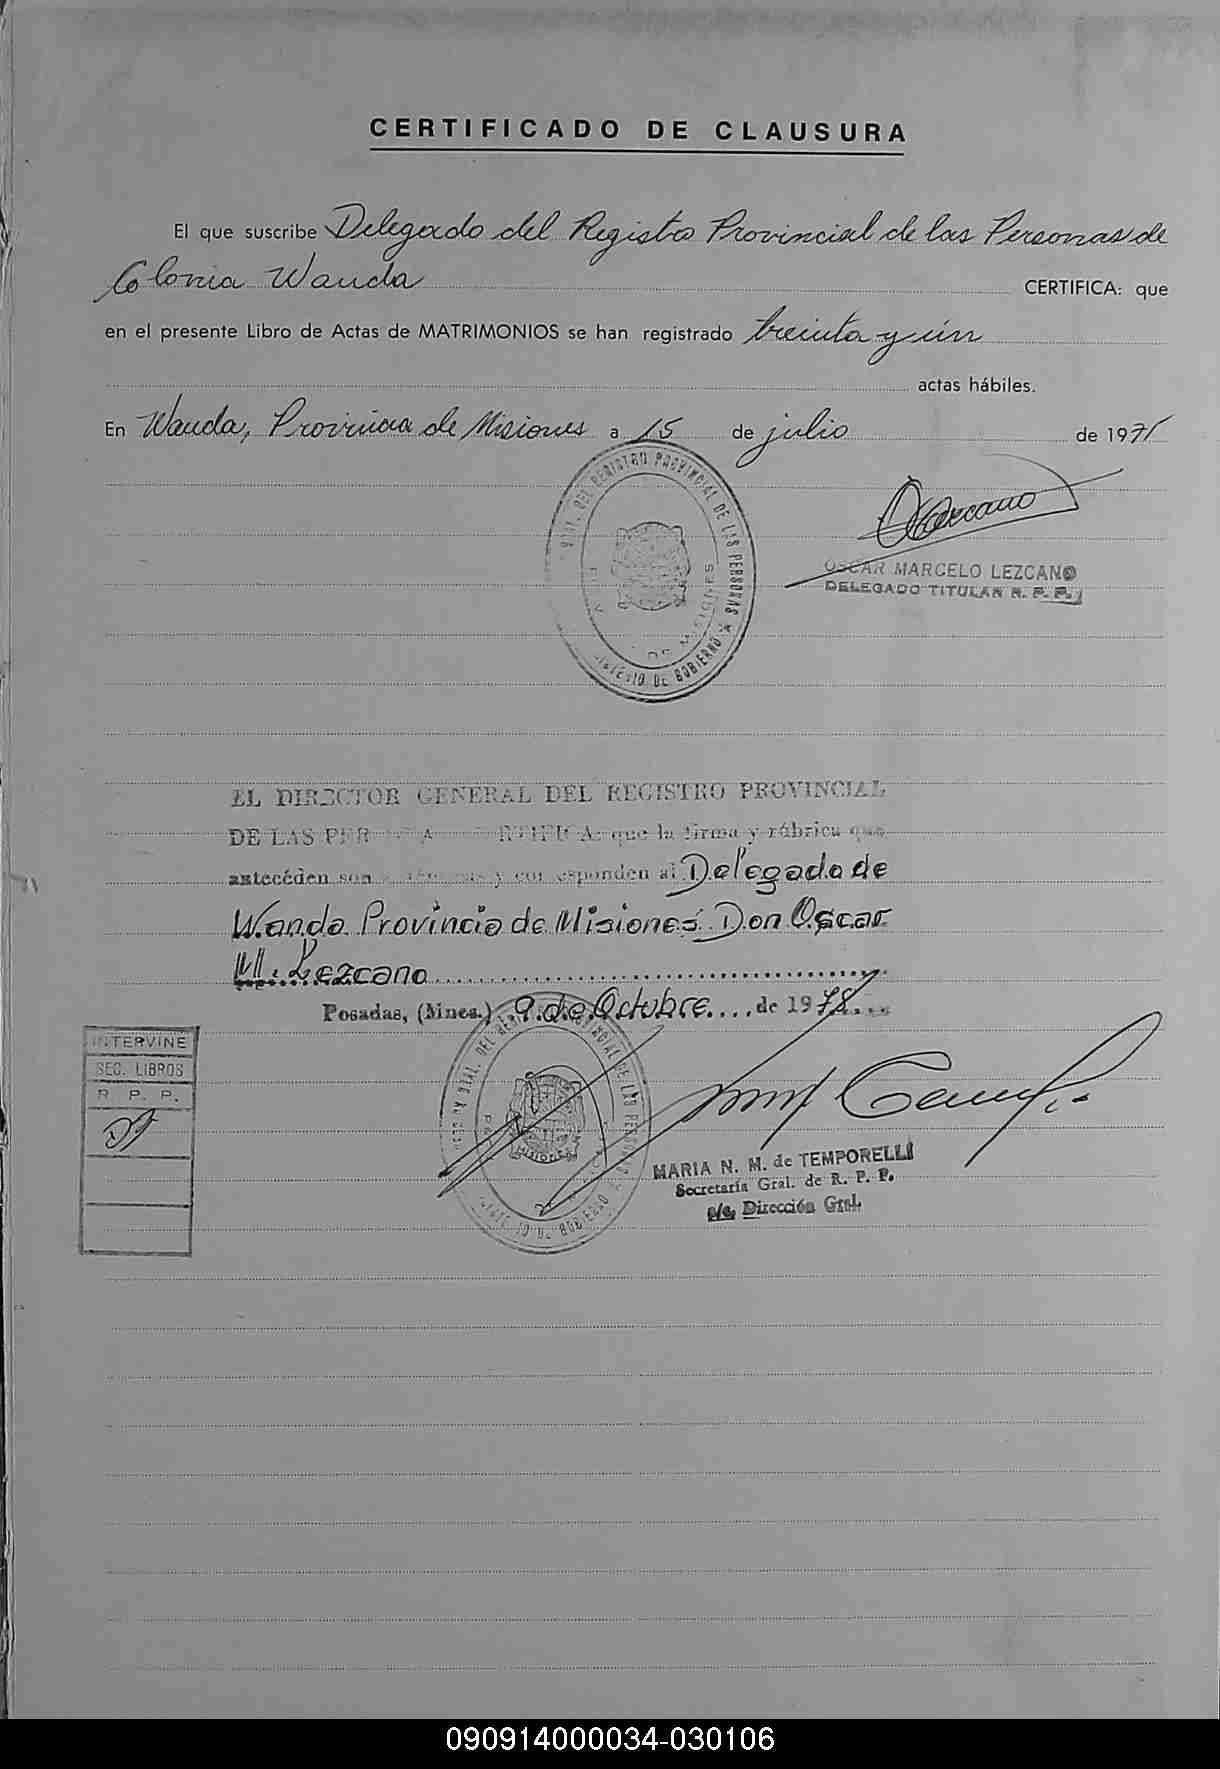 CERTIFICADO DE CLAUSURA
El que suscribe Delegado del Registro Provincial de las Personas de
Colonia Wanda CERTIFICA: que
en el presente Libro de Actas de MATRIMONIOS se han registrado treinta y un
actas hábiles.
En Wanda, Provincia de Misiones a 15 de julio de 1971
DEL REGISTRO PROVINCIAL DE LAS PERSONAS
DE MISIONES
DE GOBIERNO
OSCAR MARCELO LEZCANO
DELEGADO TITULAR R. P. P.
EL DIRECTOR GENERAL DEL REGISTRO PROVINCIAL
DE LAS que la firma y rúbrica que
antecéden son y corresponden al Delegado de
Wanda Provincia de Misiones Don Oscar
M. Lezcano
Posadas, (Mnes.) 9 de Octubre de 1978
INTERVINE
SEC. LIBROS
R. P. P.
DEL DE LAS
MISIONES
DE GOBIERNO
MARIA N. M. de TEMPORELLI
Secretaría Gral. de R. P. P.
a/c. Dirección Gral.
090914000034-030106